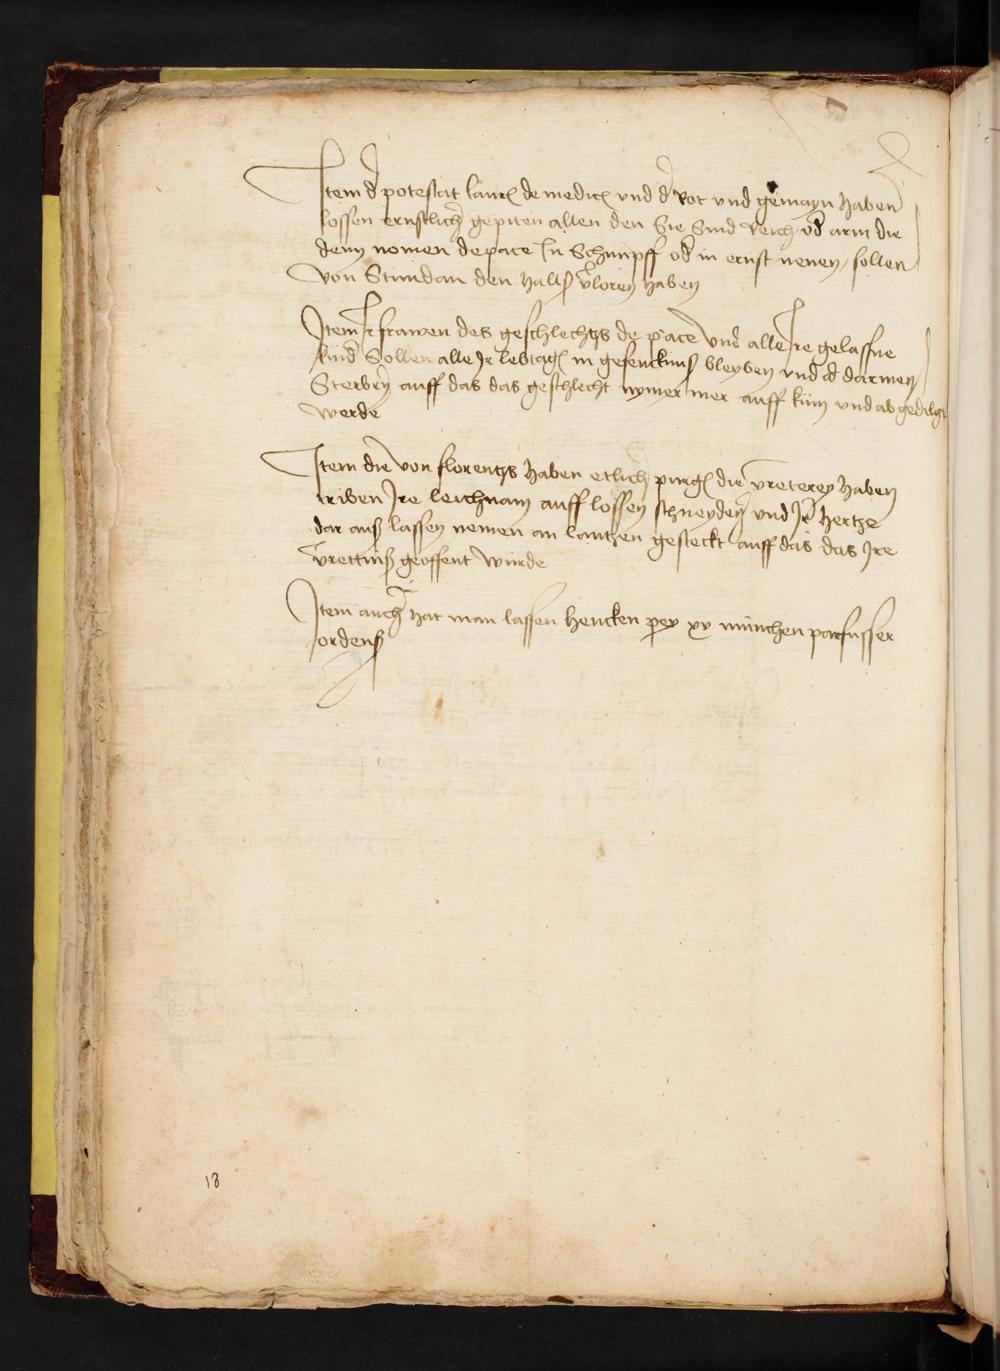 Item d' potestat laurꝫ de medicꝫ und d' Rot und gemayn haben
lossen ernstlich gepiten allen den Sie Sind Reich od' arm die
denn nomen de pace In Schimpff od' in ernst nenen / sollen
von Stundan den halls v̄loren haben
Item Ir frawen des geschlechtz de pace Und alle Ire gelassne
kind Sollen alle Ir lebtag in gefencknuß bleyben und darinen
Sterben auff das das geschlecht nymer mer auff kum und ab gedilgt
werde
Item die von florentzs haben etlich purgꝫ die v̄reterey haben
triben Ire leichnam auff lossen schneyden und Ir hertze
dar auß lassen nemen an lantzen gesteckt auff das das Ire
v̄rettnuß geoffent wurde
Item auch hat man lassen hencken pey xv munchen parfusser
ordenß
18